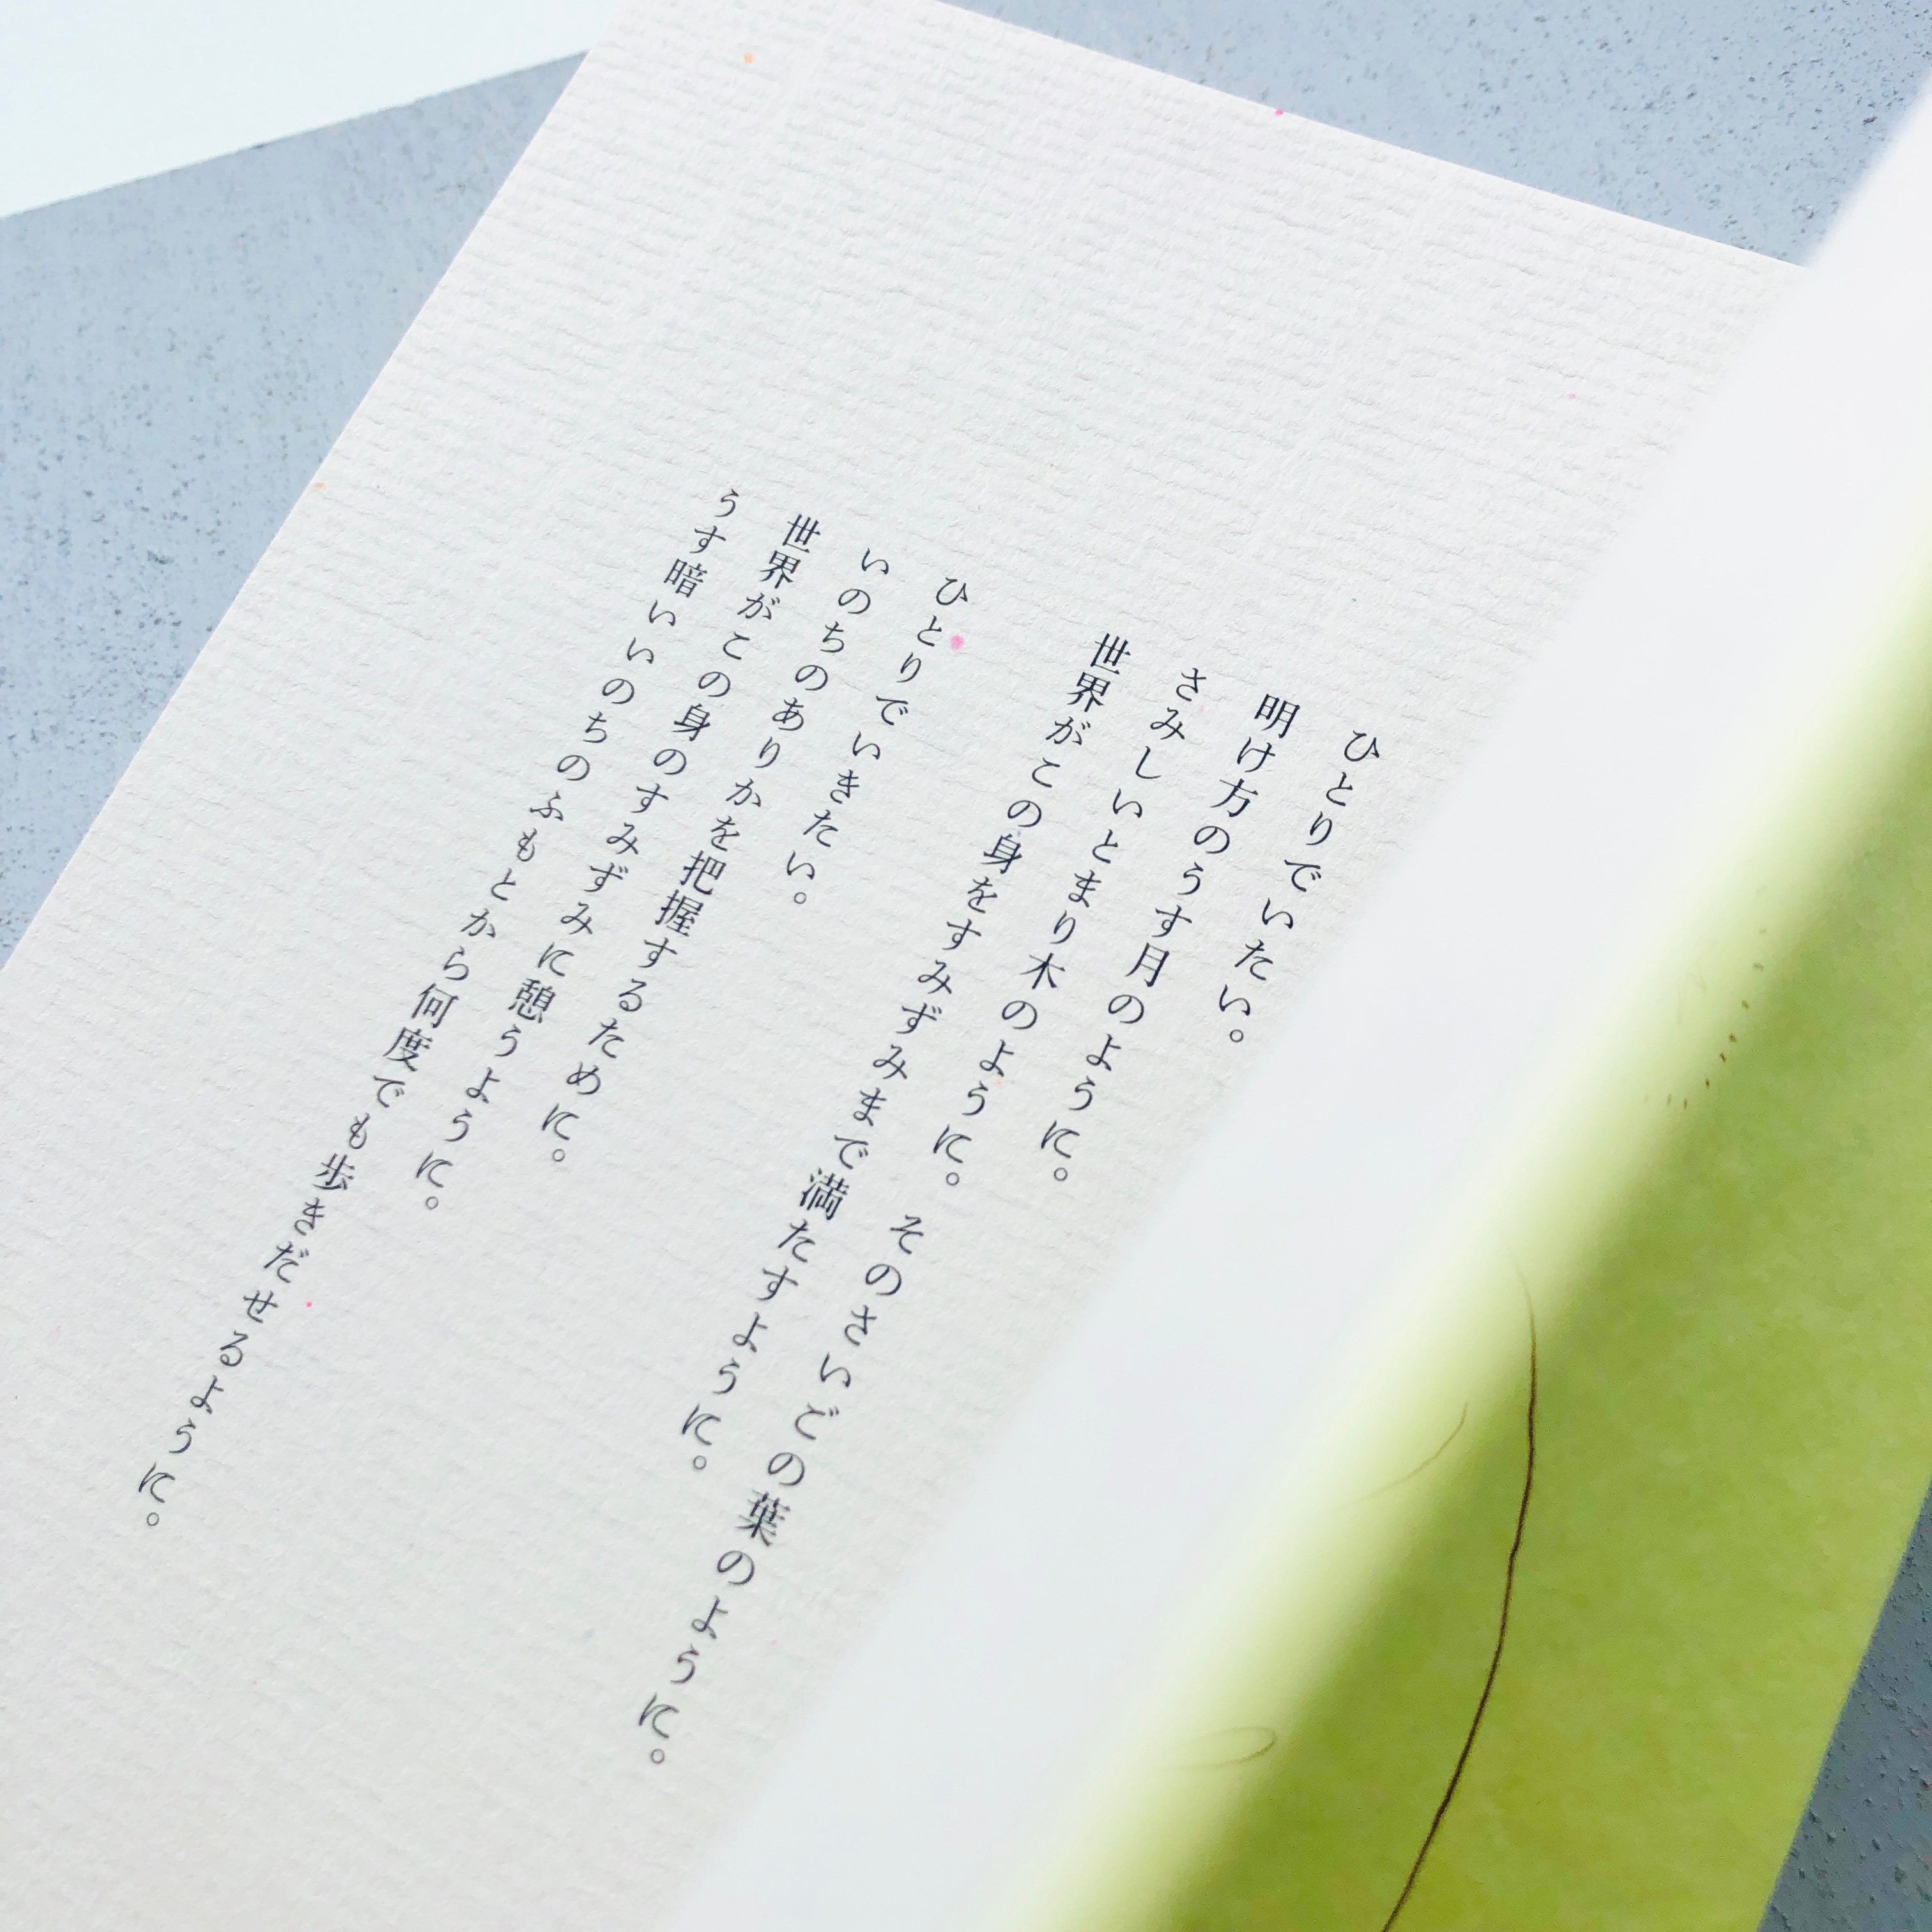 ひとりでいたい。
明け方のうす月のように。
さみしいとまり木のように。そのさいごの葉のように。
世界がこの身をすみずみまで満たすように。
ひとりでいきたい。
いのちのありかを把握するために。
世界がこの身のすみずみに憩うように。
うす暗いいのちのふもとから何度でも歩きだせるように。